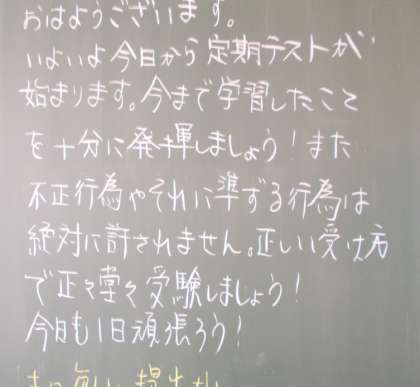 おはようございます。
いよいよ今日から定期テストが
始まります。今まで学習したこと
を十分に発揮しましょう！また
不正行為やそれに準ずる行為は
絶対に許されません。正しい受け方
で正々堂々受験しましょう！
今日も1日頑張ろう！